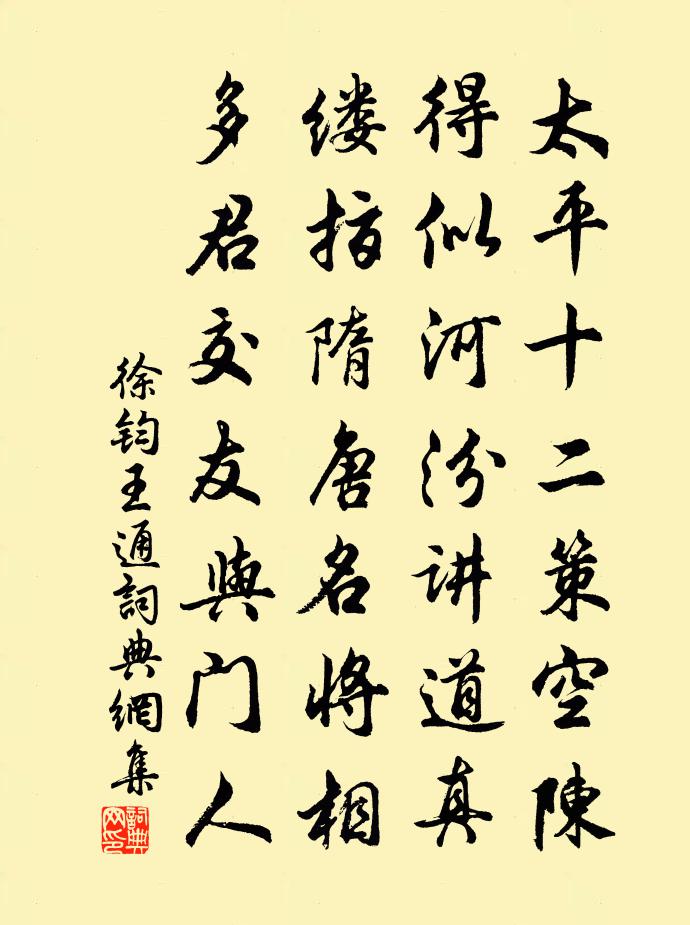 太平十二策空陳
得似河汾讲道真
缕指隋唐名将相
多君交友與门人
徐钧王通詞典網集
詞典网印